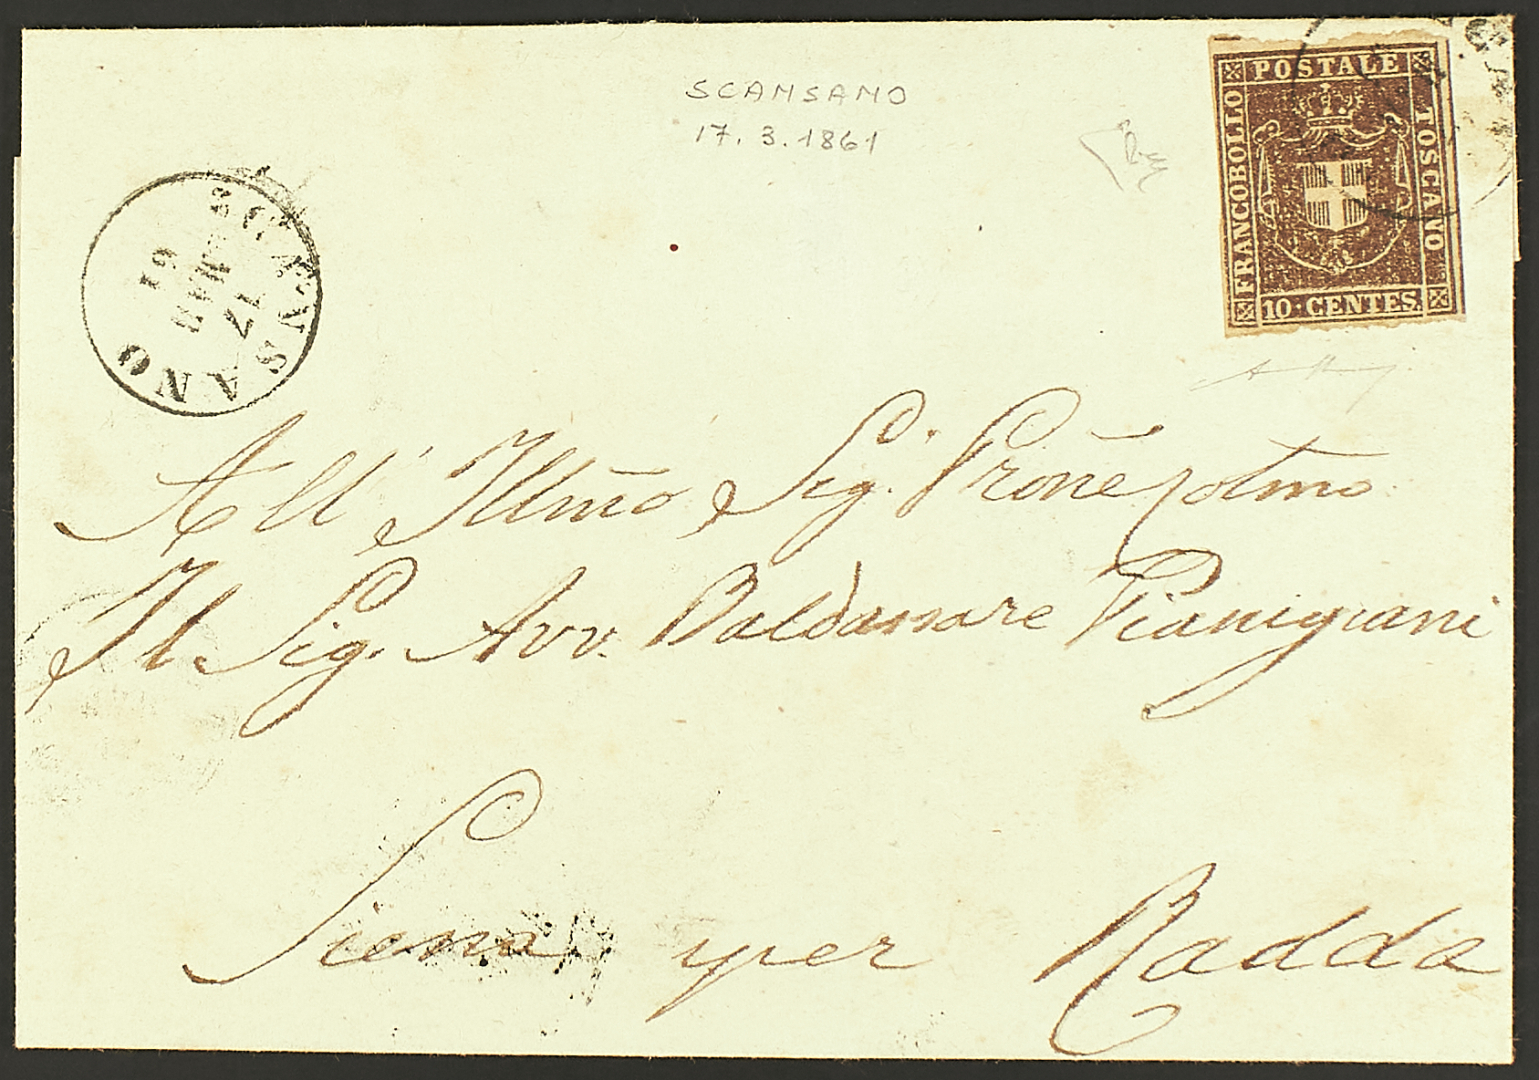 SCANSANO
17.3.1861
FRANCOBOLLO
POSTALE
TOSCANO
10·CENTES.
SCANSANO
17
MAR
61
All' Illmo Sig. Prone
Il Sig. Avv. Baldassare Pianigiani
Siena per Radda